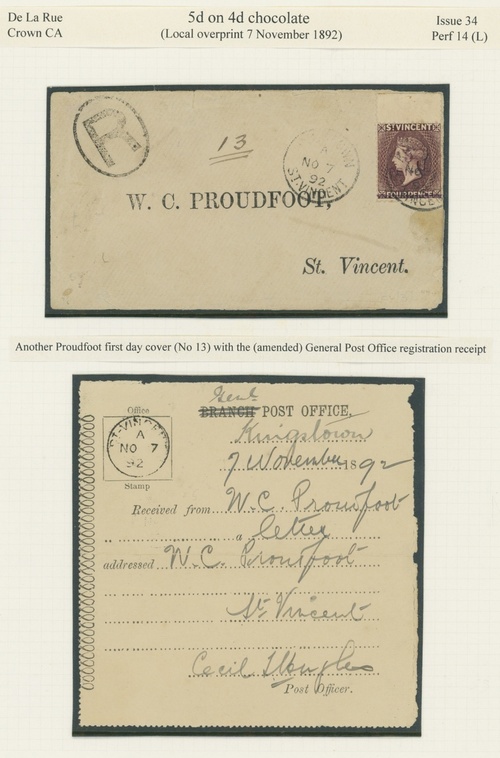 De La Rue
Crown CA
5d on 4d chocolate
(Local overprint 7 November 1892)
Issue 34
Perf 14 (L)
R
13
A
NO 7
92
ST. VINCENT
ST VINCENT
FOUR PENCE
W. C. PROUDFOOT,
St. Vincent.
Another Proudfoot first day cover (No 13) with the (amended) General Post Office registration receipt
Genl
BRANCH POST OFFICE,
Office
ST. VINCENT
A
NO 7
92
Stamp
Kingstown
7 November 1892
Received from W. C. Proudfoot
a letter
addressed W. C. Proudfoot
St Vincent
Cecil
Post Officer.